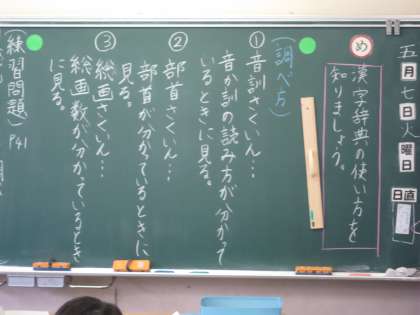 五月七日火曜日
日直
め
漢字辞典の使い方を
知りましょう。
(調べ方)
①音訓さくいん…
音か訓の読み方が分かって
いるときに見る。
②部首さくいん…
部首が分かっているときに
見る。
③総画さくいん…
総画数が分かっているとき
に見る。
(練習問題) P41